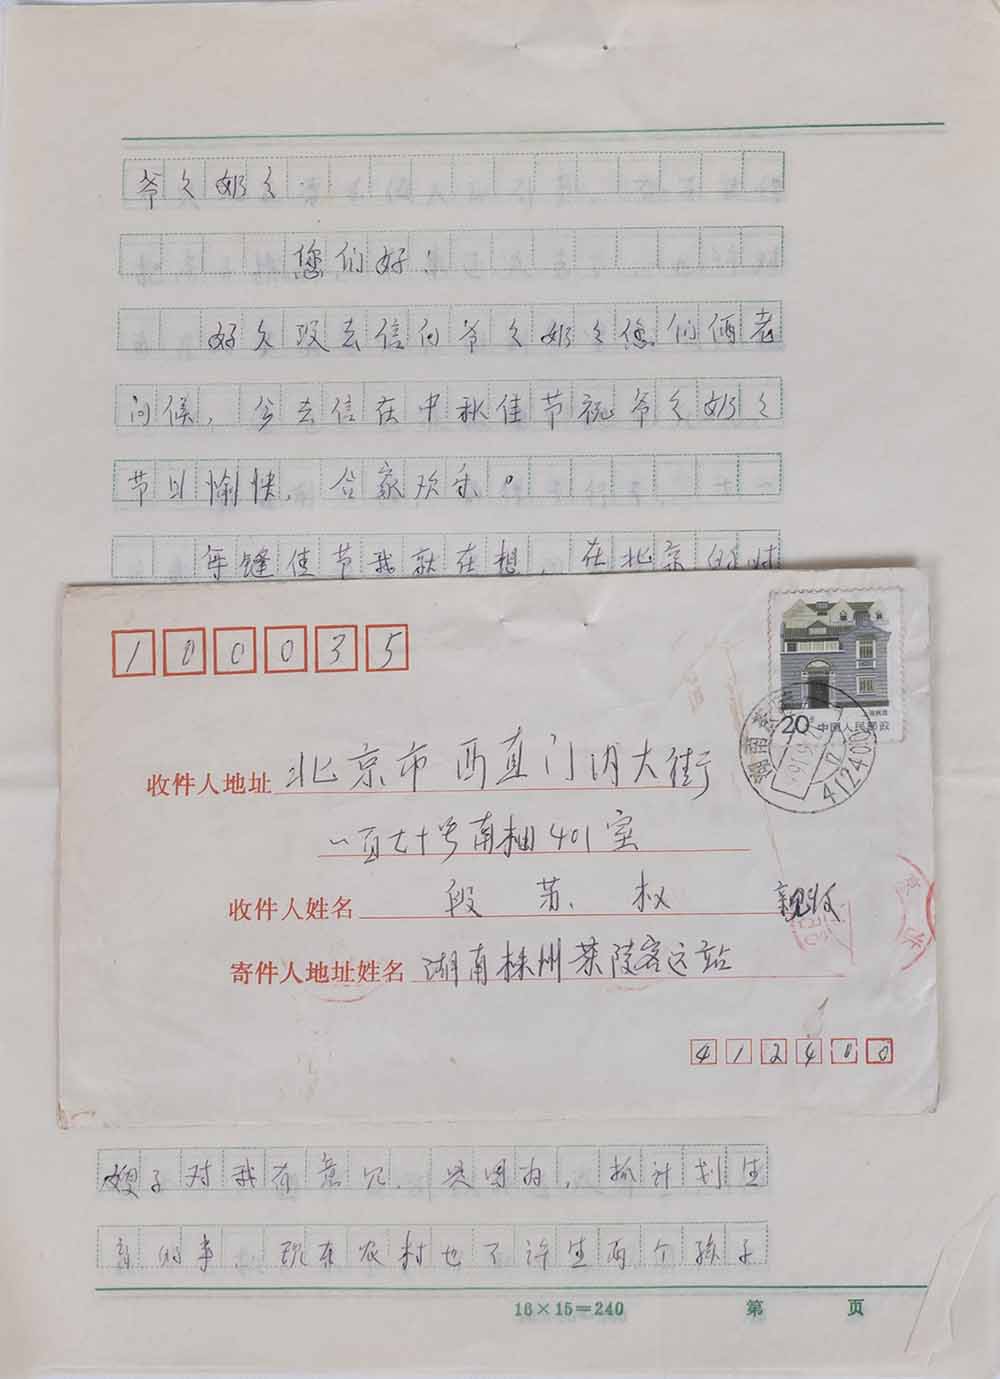 爷々奶々
您们好！
好久没去信向爷々奶々您们俩老
问候，今去信在中秋佳节祝爷々奶々
节日愉快，合家欢乐。
每逢佳节我就在想，在北京的时
100035
20分 中国人民邮政
湖南
412400
收件人地址 北京市西直门内大街
一百七十号南楼401室
收件人姓名 段苏权 亲收
寄件人地址姓名 湖南株州茶陵客运站
412400
嫂子对我有意见，只因为，抓计划生
育的事，现在农村也不许生两个孩子
16×15=240 第 页